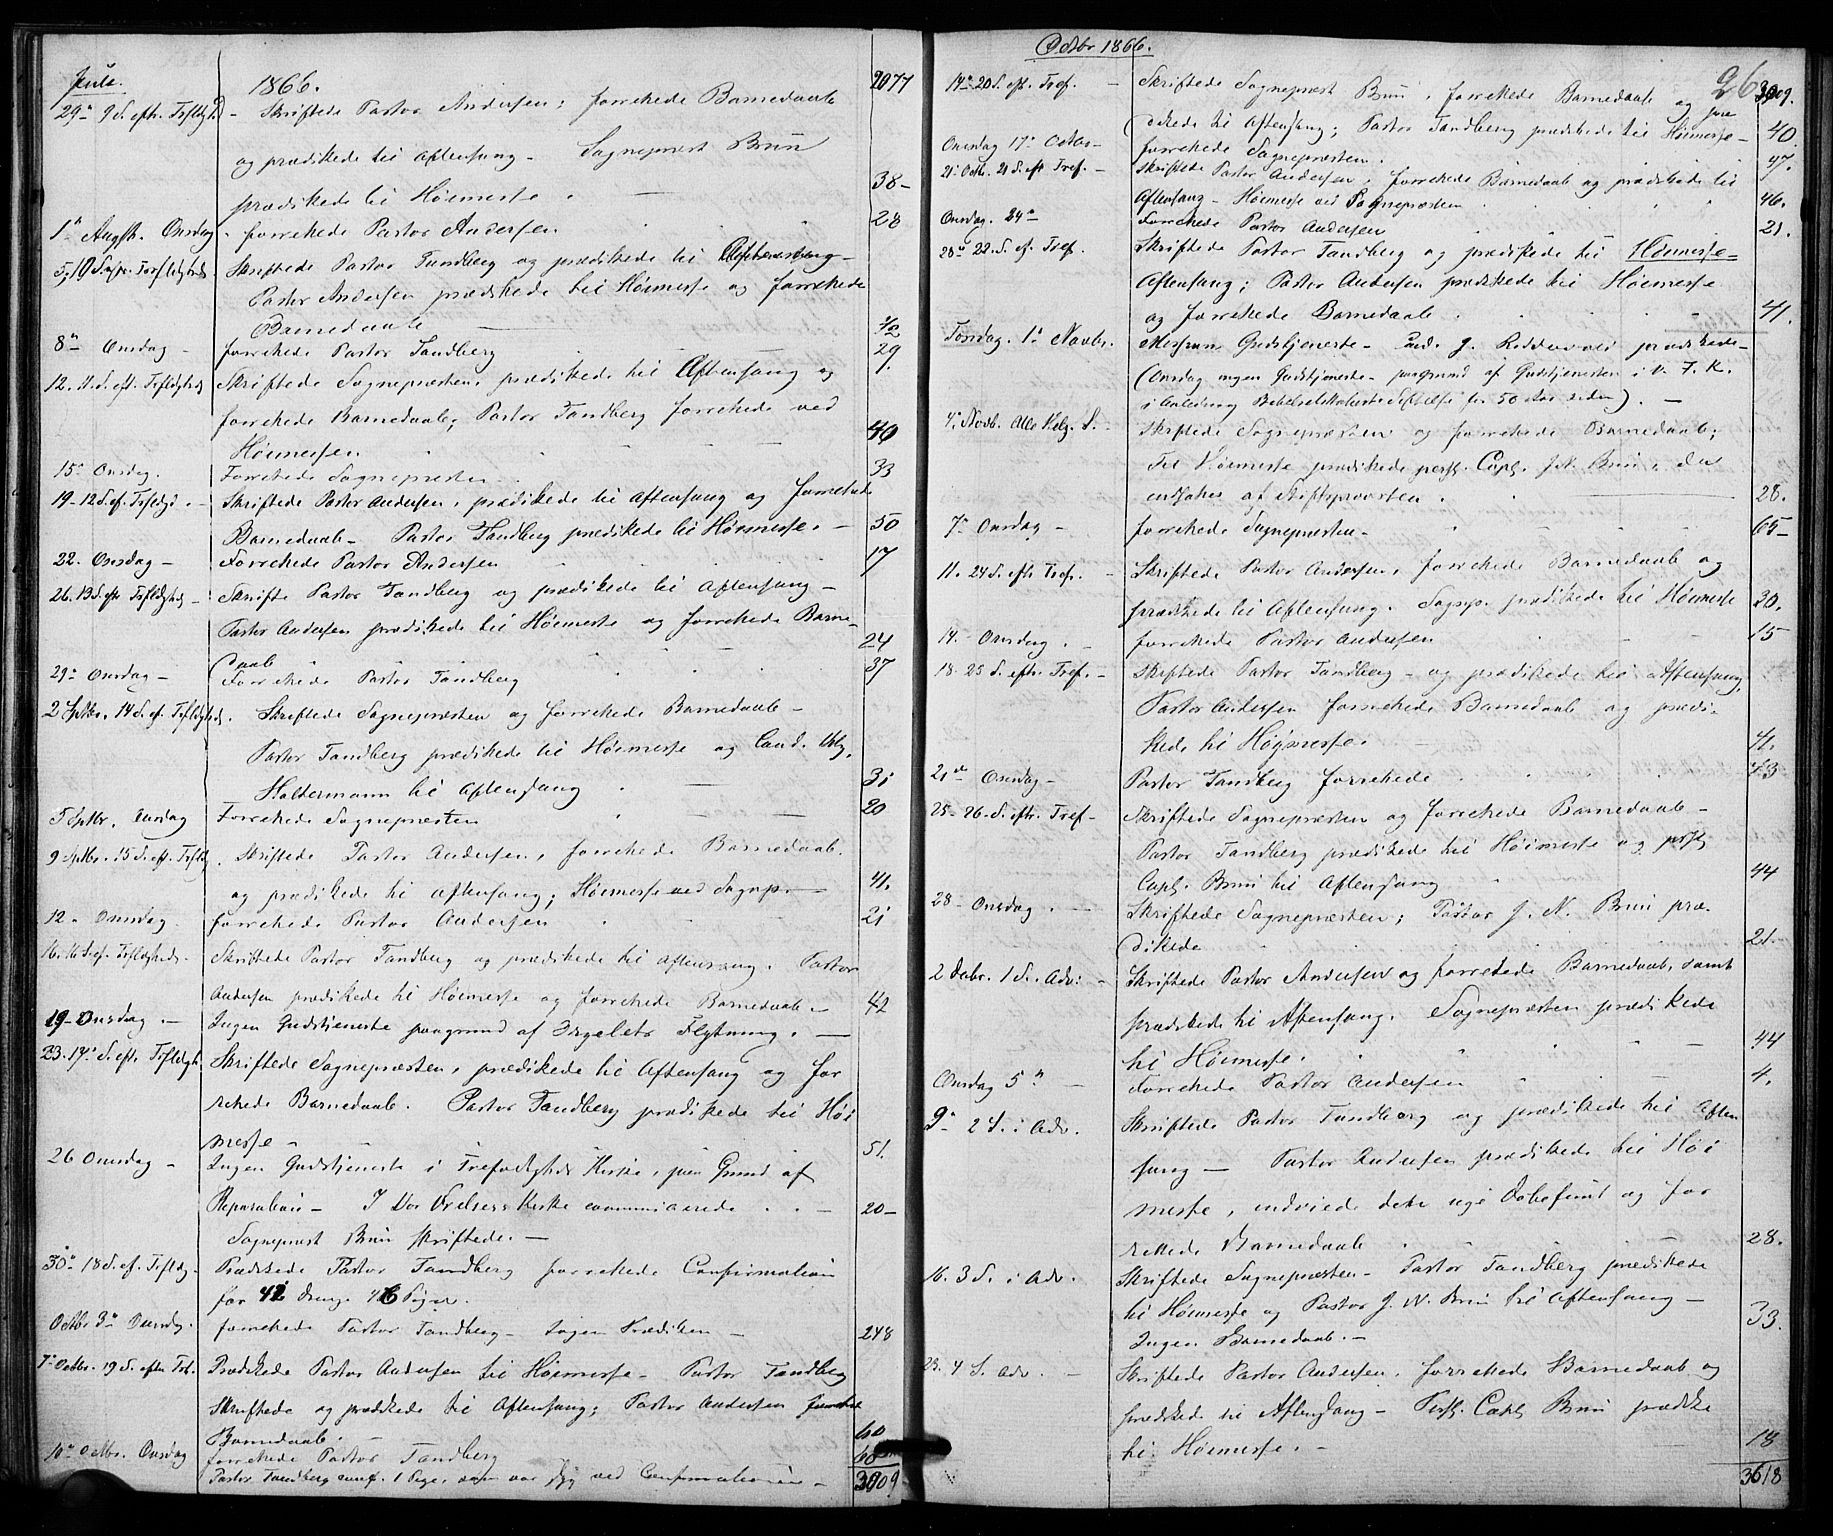 Jula.
1866.
2077
29de 9 S. eftr. Trfldghd - Skriftede Pastor Andersen, forrettede Barnedaab
og prædikede til Aftensang - Sognepræst Brun
prædikede til Høimesse 38-
1ste Augst. Onsdag. forrettede Pastor Andersen 28
5, 10 S. eftr. Trefoldighds Skriftede Pastor Tandberg og prædikede til Aftensang -
Pastor Andersen prædikede til Høimesse og forrettede
Barnedaab 42
8de Onsdag - forrettede Pastor Tandberg 29.
12. 11. S. eft. Trfldghds Skriftede Sognepræsten, prædikede til Aftensang og
forrettede Barnedaab; Pastor Tandberg forrettede ved
Høimessen 40
15de Onsdag. Forrettede Sognepræsten 33
19 - 12 S. ef. Trfldgh. - Skriftede Pastor Andersen, prædikede til Aftensang og forrettede
Barnedaab - Pastor Tandberg prædikede til Høimesse. - 50
22. Onsdag - Forrettede Pastor Andersen 17
26. 13 S. eft Trfldghd - Skrifte Pastor Tandberg og prædikede til Aftensang -
Pastor Andersen prædikede til Høimesse og forrettede Barne-
daab 24
29de Onsdag - Forrettede Pastor Tandberg 37
2 Septbr. 14 S. ef. Trfldghds. Skriftede Sognepræsten og forrettede Barnedaab -
Pastor Tandberg prædikede til Høimesse og Cand.
Haltermann til Aftensang 31
5 Septbr. Onsdag Forrettede Sognepræsten 20
9 Septbr. 15 S. eft. Trfldg. Skriftede Pastor Andersen, forrettede Barnedaab
og prædikede til Aftensang; Høimesse ved Sognepr. 41.
12 - Onsdag. forrettede Pastor Andersen 21
16. 16 S. ef. Trfldghds. Skriftede Pastor Tandberg og prædikede til Aftensang. Pastor
Andersen prædikede til Høimesse og forrettede Barnedaab - 42
19 - Onsdag. - Ingen Gudstjeneste paagrund af Orgelets Flytning. -
23. 17de S. eftr. Trfldgh. Skriftede Sognepræsten, prædikede til Aftensang og for
rettede Barnedaab. Pastor Tandberg prædikede til Høi
messe 51.
26 Onsdag - Ingen Gudstjeneste i Trefoldigheds Kirke, paa Grund af
Reparation - I Vor Frelsers Kirke communicerede 20 -
Sognepræst Brun skriftede. -
30te 18 S. ef. Trfldg - Prædikede Pastor Tandberg forrettede Confirmation
for 42 Drenge 46 Piger.
Octbr 3de Onsdag. forrettede Pastor Tandberg - Ingen Prædiken - 248
7de Octbr. 19 S. efter Tref. Prædikede Pastor Andersen til Høimesse - Pastor Tandberg
Skriftede og prædikede til Aftensang; Pastor Andersen forrettede
Barnedaab. 60
10de Octbr. Onsdag forrettede Pastor Tandberg 68
Pastor Tandberg conf. 1 Pige, som var syg ved Confirmationen -
3009
Octbr 1866.
26
3009.
14de 20 S. eft. Tref. - Skriftede Sognepræst Brun, forrettede Barnedaab og præ
dikede til Aftensang; Pastor Tandberg prædikede til Høimesse - 40.
Onsdag 17de Octbr - forrettede Sognepræsten. 47.
21de Octbr. 21 S. eft Tref. - Skriftede Pastor Andersen, forrettede Barnedaab og prædikede til
Aftensang - Høimesse ved Sognepræsten 46.
Onsdag. 24de Forrettede Pastor Andersen 21.
28de 22. S. ef. Tref. Skriftede Pastor Tandberg og prædikede til Høimesse -
Aftensang; Pastor Andersen prædikede til Høimesse
og forrettede Barnedaab 41.
Torsdag. 1ste Novbr. Mission Gudstjeneste - Pred. J. prædikede -
(Onsdag ingen Gudstjeneste - paagrund af Gudstjenesten i V. F. K.
i Anledning Bibelselskabets Stiftelse for 50 Aar siden). -
4de Novb. Alle Helg. S. - Skriftede Sognepræsten og forrettede Barnedaab;
Til Høimesse prædikede pers. Capl. J. N. Brun, der
indsattes af Stiftsprovsten. 28.
7de Onsdag - forrettede Sognepræsten - 65 -
11. 24 S. eftr Tref. - Skriftede Pastor Andersen, forrettede Barnedaab og
prædikede til Aftensang. Sognepr. prædikede til Høimesse 30.
14. Onsdag. - forrettede Pastor Andersen 15
18 - 25 S. eftr. Tref. - Skriftede Pastor Tandberg - og prædikede til Aftensang,
Pastor Andersen forrettede Barnedaab og prædi-
kede til Høimesse. 41.
21de Onsdag - Pastor Tandberg forrettede 43
25 - 26 - S. eftr. Tref - Skriftede Sognepræsten og forrettede Barnedaab -
Pastor Tandberg prædikede til Høimesse og pers.
Capl. Brun til Aftensang 44
28 - Onsdag. - Skriftede Sognepræsten; Pastor J. N. Brun præ.
dikede 21.
2 Debr. 1 S. i Adv: - Skriftede Pastor Andersen og forrettede Barnedaab, samt
prædikede til Aftensang. Sognepræsten prædikede
til Høimesse. 44
Onsdag 5te - Forrettede Pastor Andersen 4.
9de 2 S. i Adv. Skriftede Pastor Tandberg og prædikede til Aften
sang - Pastor Andersen prædikede til Høi
messe, indviede dette nye Døbefunt og for
rettede Barnedaab 28.
16. 3 S. i Adv. Skriftede Sognepræsten - Pastor Tandberg prædikede
til Høimesse og Pastor J. N. Brun til Aftensang - 33.
Ingen Barnedaab. -
23. 4 S. Adv. - Skriftede Pastor Andersen, forrettede Barnedaab og
prædikede til Aftensang - Pers. Capl Brun prædike
til Høimesse. - 18
3618